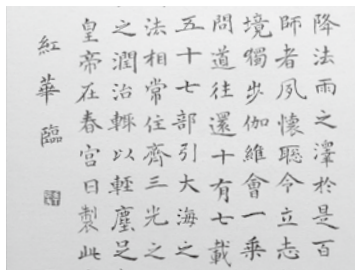 降法雨之澤於是百
師者夙懷聡令立志
境獨步伽維會一乘
問道往還十有七載
五十七部引大海之
法相常住齊三光之
之潤治輙以輕塵足
皇帝在春宮日製此
紅華臨